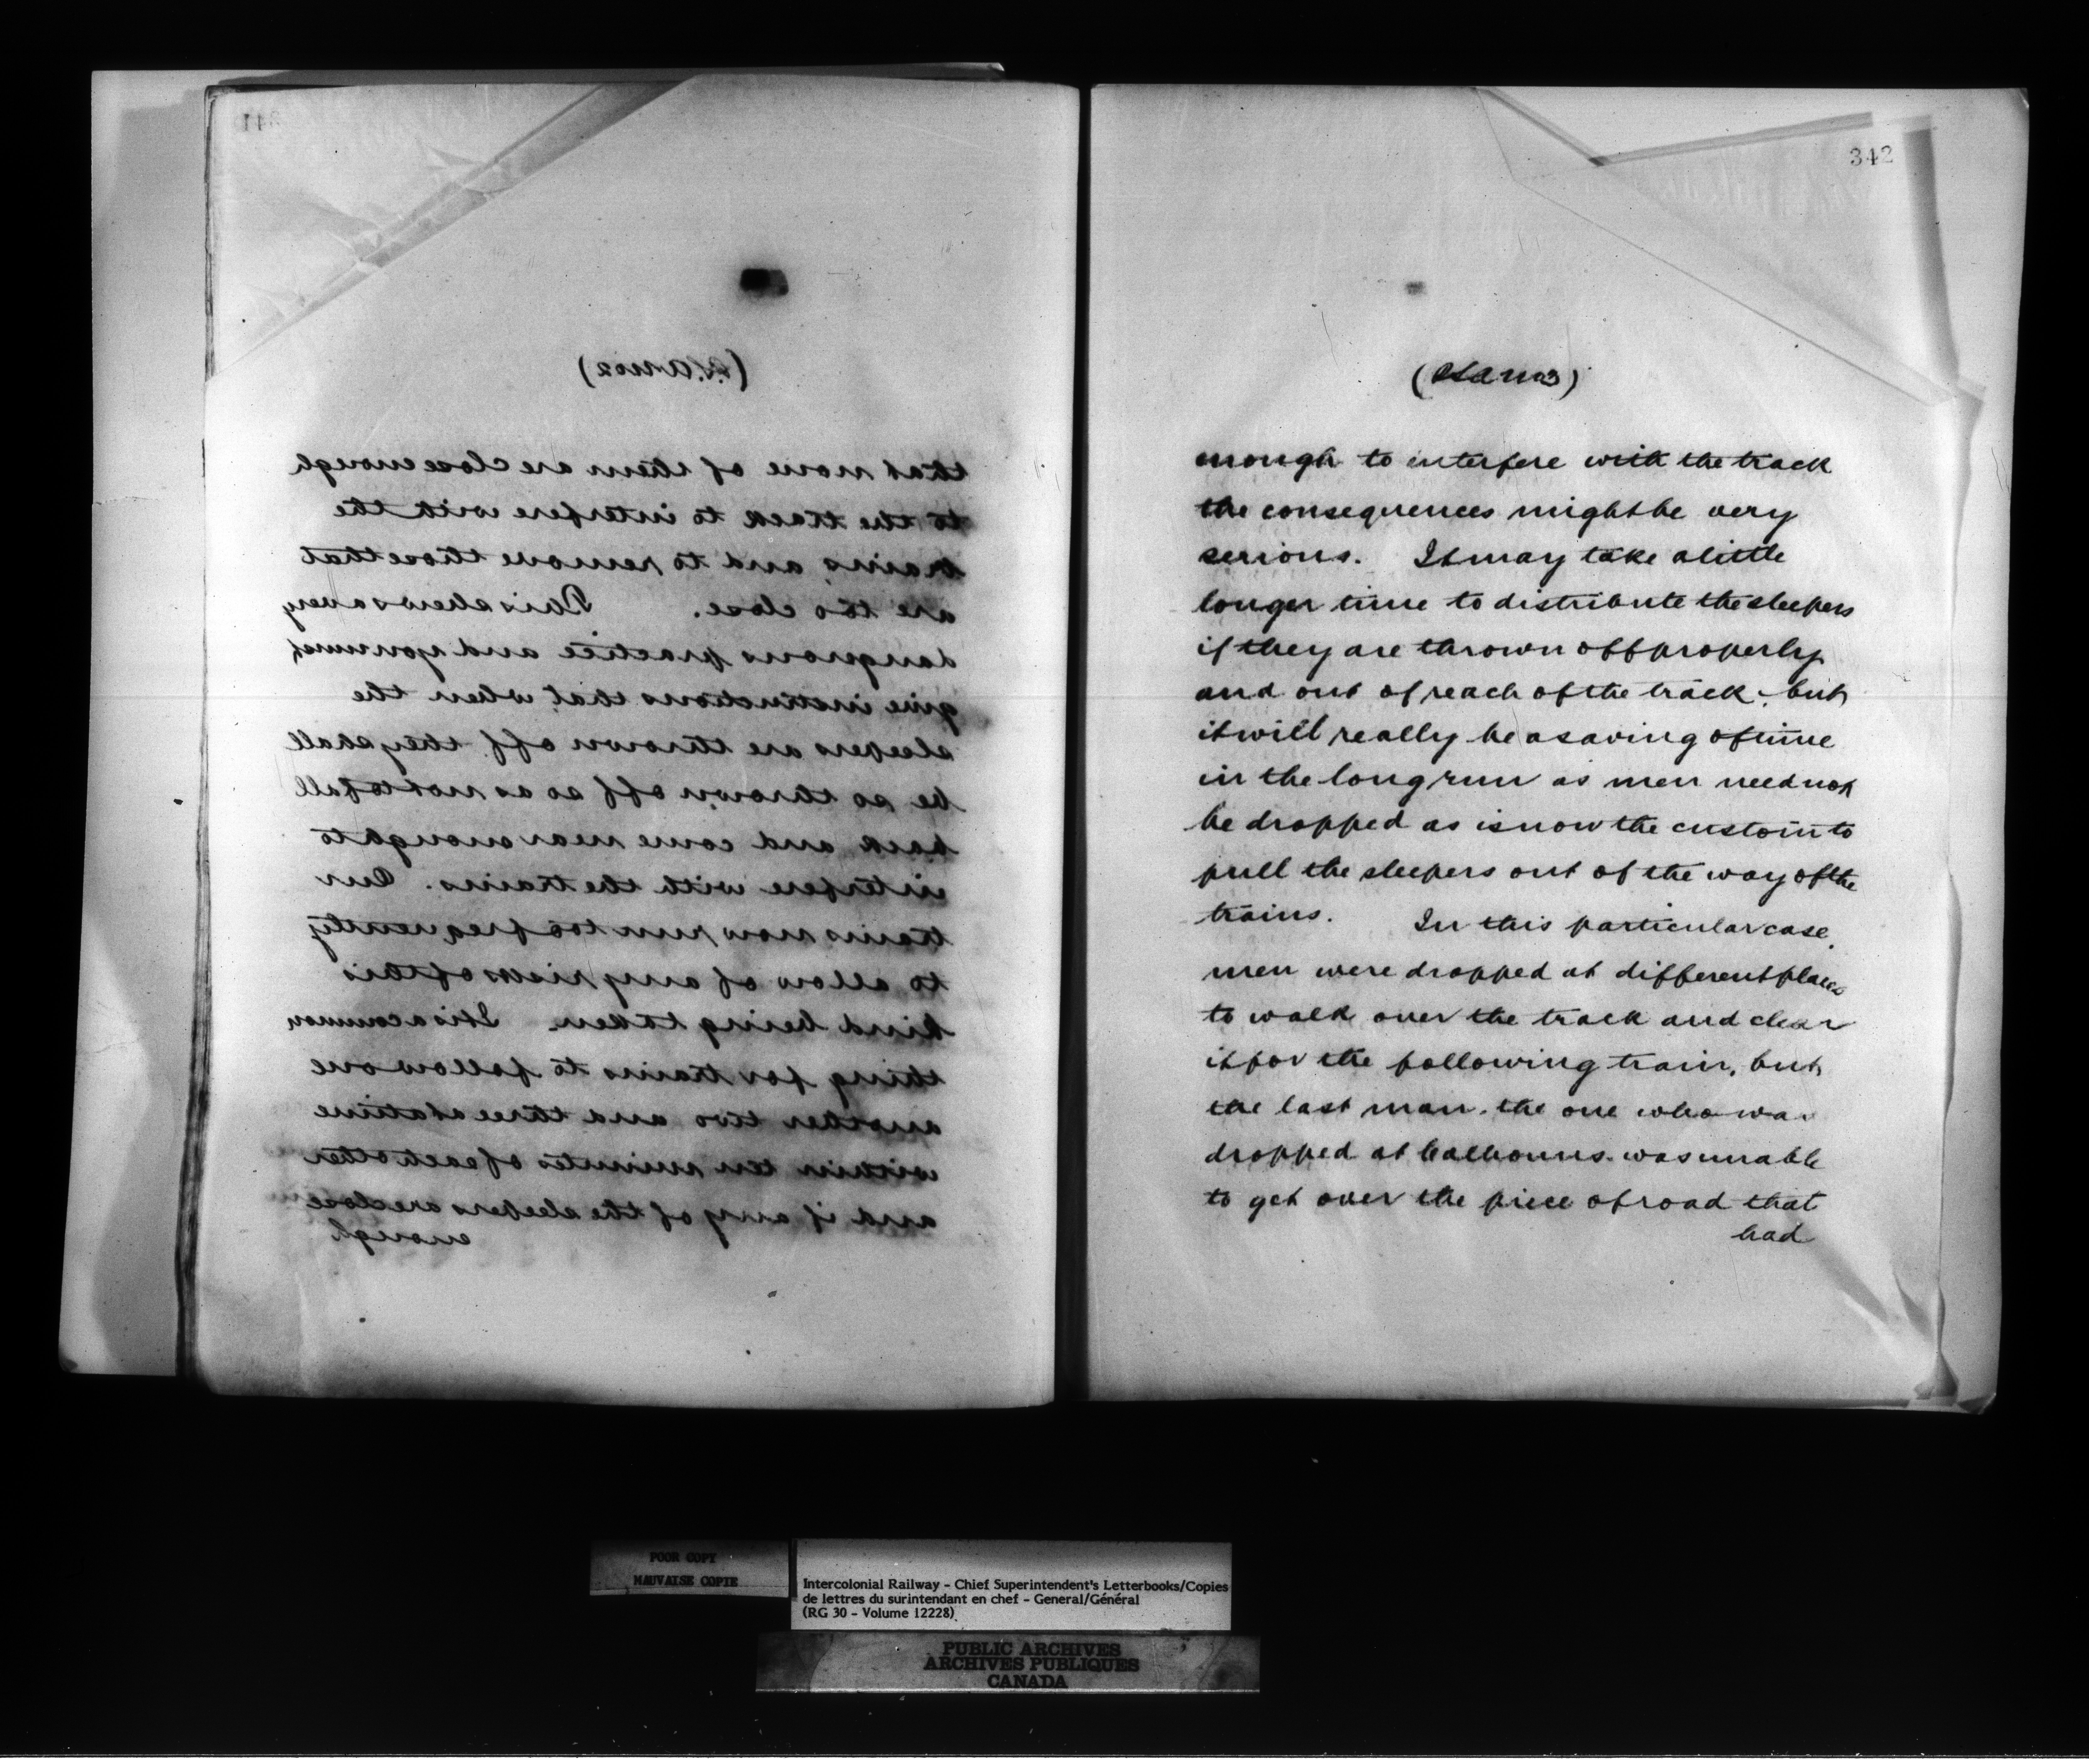 341
that none of them are close enough
to the track to interfere with the
trains, and to remove those that
are too close. This shews a very
dangerous practice and you must
give instructions that when the
sleepers are thrown off they shall
be so thrown off so as not to fall
back and come near enough to
interfere with the trains. Our
trains now run too frequently
to allow of any risks of this
kind being taken. It is a common
thing for trains to follow one
another two and three at a time
within ten minutes of each other
and if any of the sleepers are close
enough
342
enough to interfere with the track
the consequences might be very
serious. It may take a little
longer time to distribute the sleepers
if they are thrown off properly
and out of reach of the track, but
it will really be a saving of time
in the long run as men need not
be dropped as is now the custom to
pull the sleepers out of the way of the
trains. In this particular case,
men were dropped at different places
to walk over the track and clear
it for the following train, but
the last man, the one who was
dropped at Calhouns was unable
to get over the piece of road that
had
POOR COPY
MAUVAISE COPIE
Intercolonial Railway - Chief Superintendent's Letterbooks/Copies
de lettres du surintendant en chef - General/Général
(RG 30 - Volume 12228)
PUBLIC ARCHIVES
ARCHIVES PUBLIQUES
CANADA